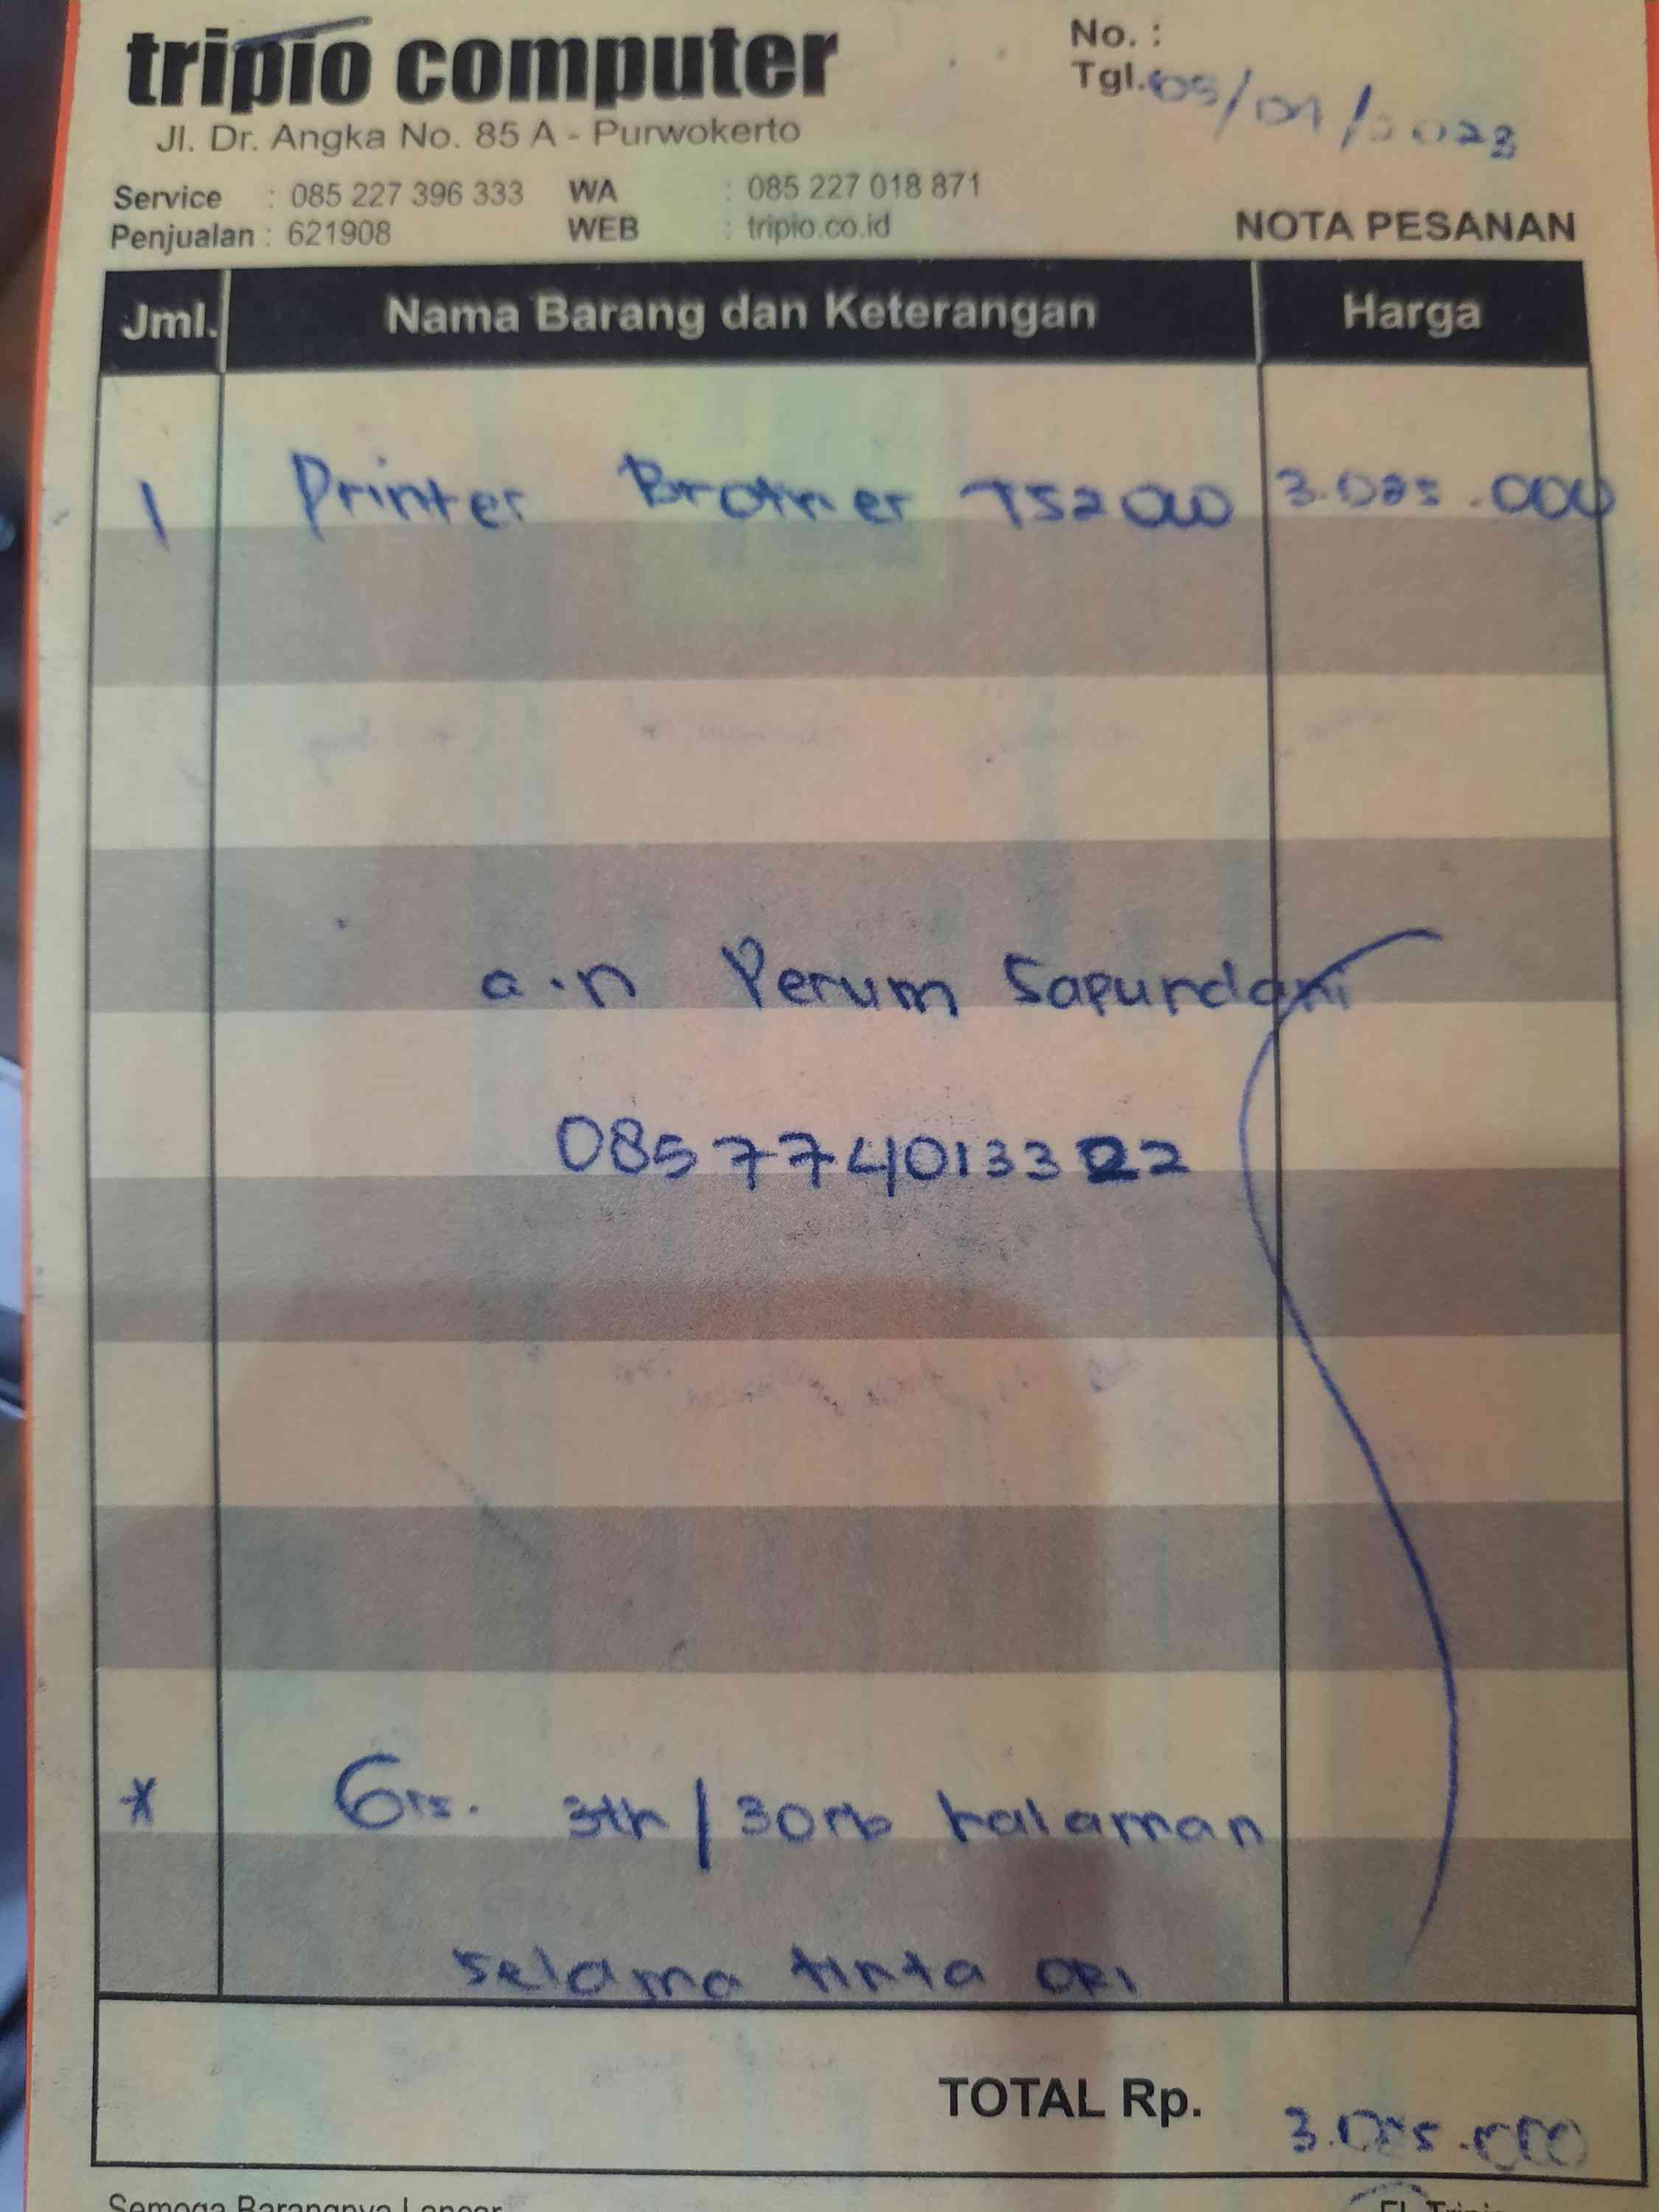 tripio computer
No. :
Tgl. 05/01/2023
Jl. Dr. Angka No. 85 A - Purwokerto
Service : 085 227 396 333 WA : 085 227 018 871
Penjualan : 621908 WEB : tripio.co.id
NOTA PESANAN
Jml. Nama Barang dan Keterangan Harga
1 Printer Brother T5200 3.085.000
a.n Perum Sapurdani
085774013322
* Grs. 3th/30rb halaman
selama tinta ori
TOTAL Rp. 3.085.000
Semoga Barangnya Lancar
Tripio